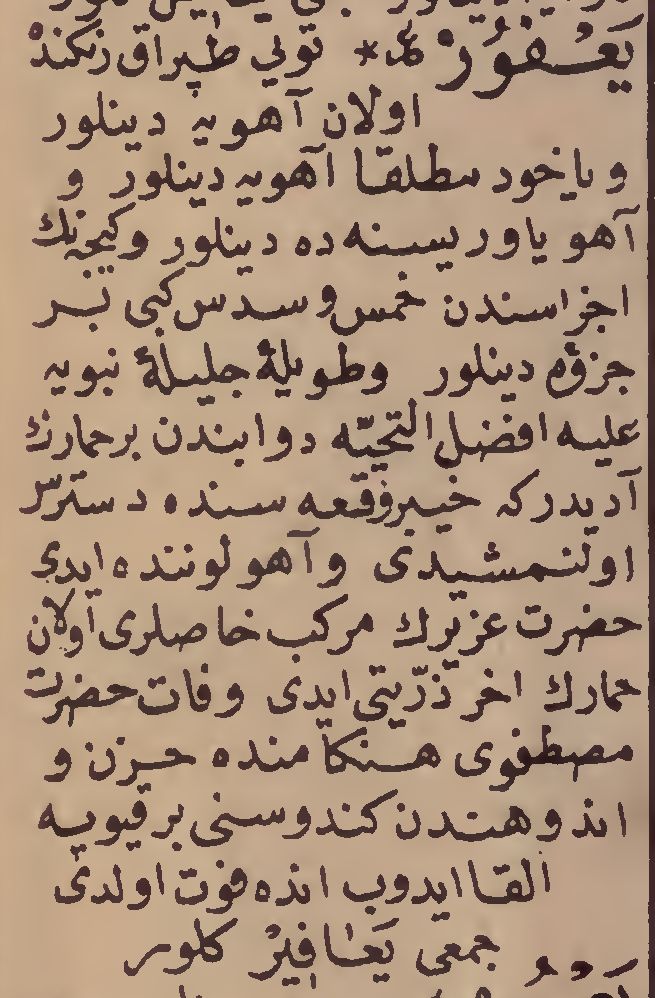 يَعْفُورْ * توبي طپراق رنكنده
اولان آهويه دينلور
وياخود مطلقا آهويه دينلور و
آهو ياوريسنه ده دينلور وكيجه نك
اجزاسندن خمس وسدس كبي بر
جزؤه دينلور وطويلۀ جليلۀ نبويه
عليه افضل التحيّه دوابندن بر حمارك
آديدر كه خيبر وقعه سنده دسترس
اولنمشيدى و آهو لوننده ايدى
حضرت عزيرك مركب خاصلرى اولان
حمارك اخر ذرّيتى ايدى وفات حضرت
مصطفوى هنكامنده حزن و
اندوهندن كندوسنى بر قيويه
القا ايدوب انده فوت اولدى
جمعى يَعَافِيرْ كلور